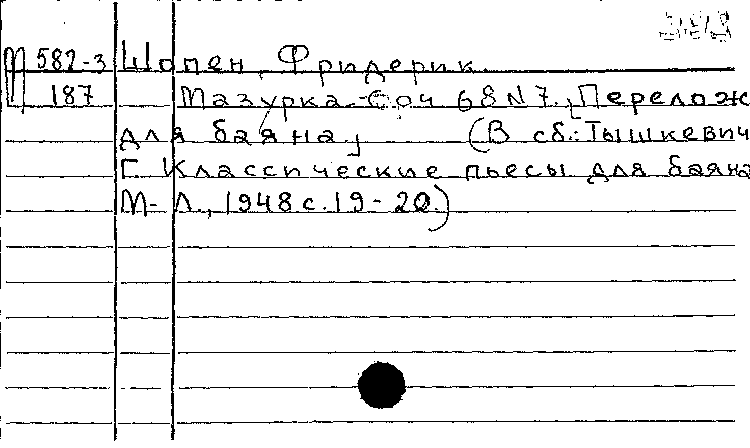 П 582-3 Шопен, Фридерик.
187 Мазурка. Соч 68 N 7. [Перелож
для баяна] (В сб.: Тышкевич
Г. Классические пьесы для баяна
М-Л., 1948 с. 19-20.)